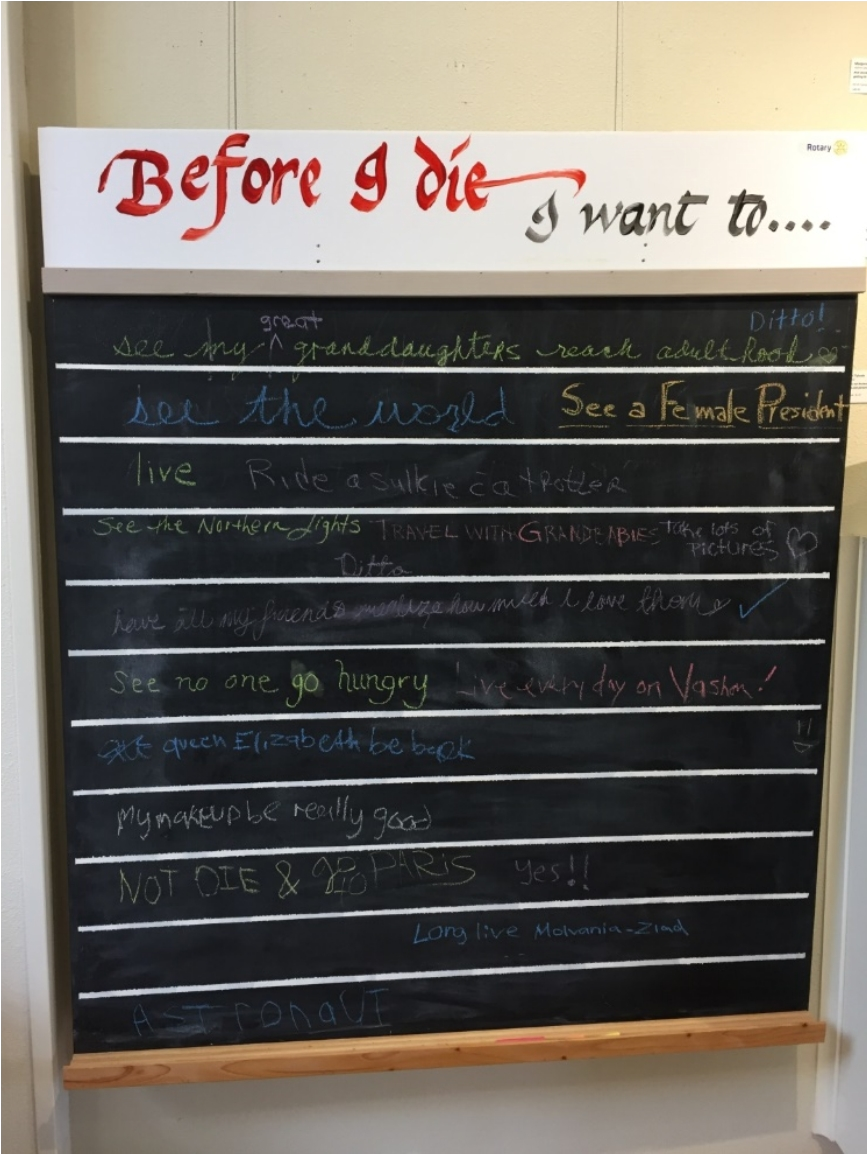 Rotary
Before I die
I want to....
Ditto!
great
see my ^ granddaughters reach adulthood
see the world See a Female President
live Ride a sulkie
See the Northern Lights TRAVEL WITH GRANDBABIES Take lots of
pictures
Ditto
have all my friends realize how much i love them
See no one go hungry Live every day on Vashon!
queen Elizabeth be back
My makeup be really good
NOT DIE & go to PARIS Yes!!
Long live Molvania-Ziad
ASTronaUT